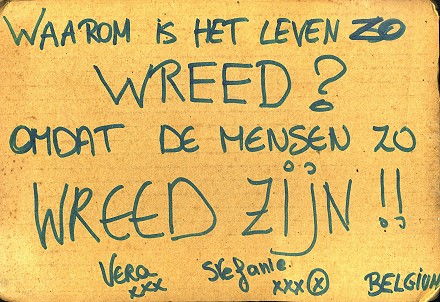 WAAROM IS HET LEVEN ZO
WREED?
OMDAT DE MENSEN ZO
WREED ZIJN!!
VERA Stefanie.
xxx xxx(x) BELGIUM